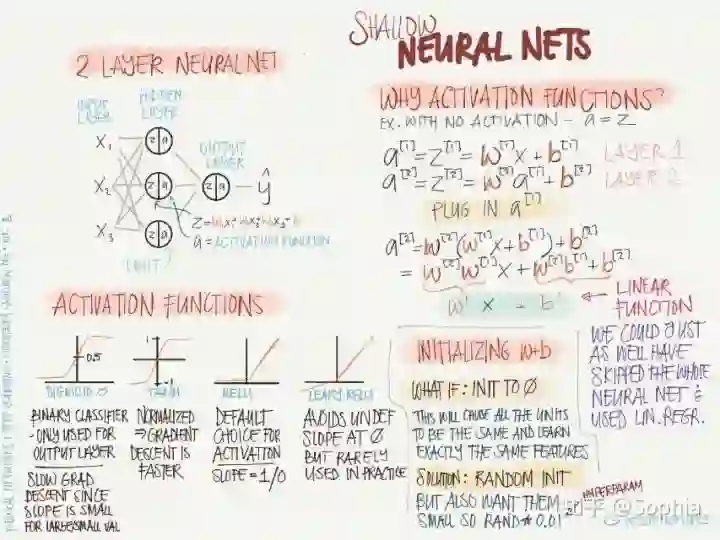 SHALLOW
NEURAL NETS
2 LAYER NEURAL NET
INPUT LAYER
HIDDEN LAYER
OUTPUT LAYER
X₁
X₂
X₃
z a
z a
z a
z a
ŷ
a = ACTIVATION FUNCTION
WHY ACTIVATION FUNCTIONS?
EX. WITH NO ACTIVATION - a = z
a[1] = z[1] = w[1]x + b[1] LAYER 1
a[2] = z[2] = w[2]a[1] + b[2] LAYER 2
PLUG IN a[1]
a[2] = w[2](w[1]x + b[1]) + b[2]
= w[2]w[1]x + w[2]b[1] + b[2]
w' x + b'
LINEAR
FUNCTION
WE COULD JUST
AS WELL HAVE
SKIPPED THE WHOLE
NEURAL NET &
USED LIN. REGR.
ACTIVATION FUNCTIONS
0.5
1
-1
SIGMOID
BINARY CLASSIFIER
- ONLY USED FOR
OUTPUT LAYER
SLOW GRAD
DESCENT SINCE
SLOPE IS SMALL
FOR LARGE/SMALL VAL
TANH
NORMALIZED
⇒ GRADIENT
DESCENT IS
FASTER
RELU
DEFAULT
CHOICE FOR
ACTIVATION
SLOPE = 1/0
LEAKY RELU
AVOIDS UNDEF
SLOPE AT 0
BUT RARELY
USED IN PRACTICE
INITIALIZING W+b
WHAT IF: INIT TO 0
THIS WILL CAUSE ALL THE UNITS
TO BE THE SAME AND LEARN
EXACTLY THE SAME FEATURES
SOLUTION: RANDOM INIT
BUT ALSO WANT THEM
SMALL SO RAND * 0.01
HYPERPARAM
知乎 @Sophia